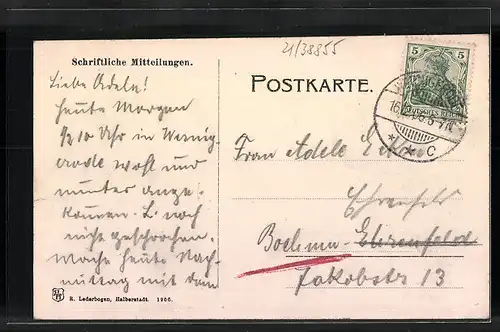 21/38855
Schriftliche Mitteilungen.
POSTKARTE.
5 5
DEUTSCHES REICH
Liebe Adele!
Heute Morgen
1/2 10 Uhr in Wernig
erode wohl und
munter ange-
kommen. L. noch
nicht gesprochen.
Mache heute Nach-
mittag mit dem
Frau Adele
Ehrenfeld
Bochum-Ehrenfeld
Jakobstr 13
R. Lederbogen, Halberstadt. 1906.